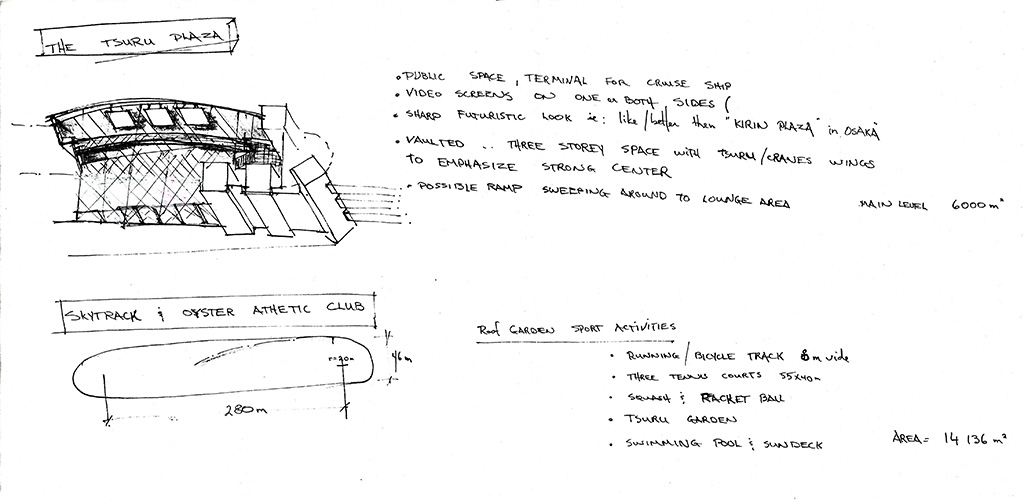 THE TSURU PLAZA
• PUBLIC SPACE, TERMINAL FOR CRUISE SHIP
• VIDEO SCREENS ON ONE or BOTH SIDES (
• SHARP FUTURISTIC LOOK ie: like/better then "KIRIN PLAZA" in OSAKA"
• VAULTED .. THREE STOREY SPACE WITH TSURU/CRANES WINGS
TO EMPHASIZE STRONG CENTER
• POSSIBLE RAMP SWEEPING AROUND TO LOUNGE AREA MAIN LEVEL 6000 m²
SKYTRACK & OYSTER ATHETIC CLUB
46 m
280 m
Roof GARDEN SPORT ACTIVITIES
• RUNNING/BICYCLE TRACK 8 m wide
• THREE TENNIS COURTS 55x40m
• SQUASH & RACKET BALL
• TSURU GARDEN
• SWIMMING POOL & SUNDECK AREA = 14 136 m²